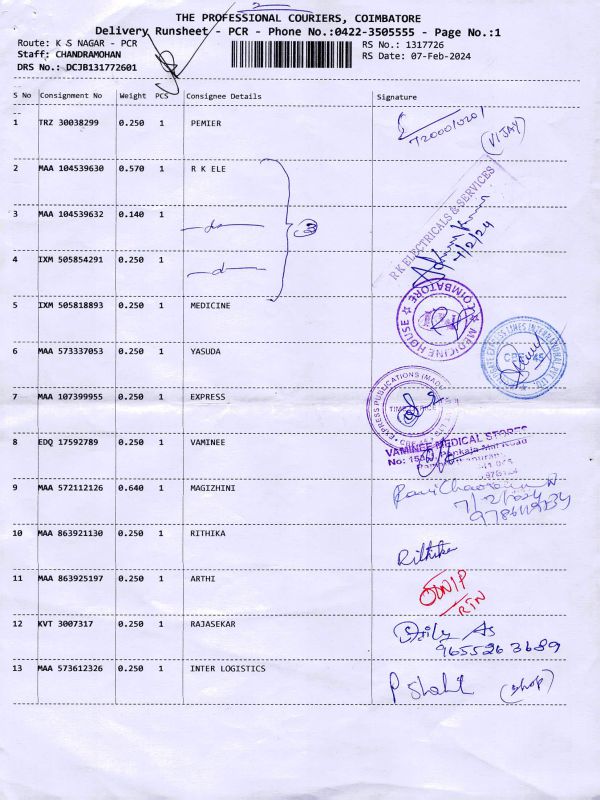 THE PROFESSIONAL COURIERS, COIMBATORE
Delivery Runsheet - PCR - Phone No.:0422-3505555 - Page No.:1
Route: K S NAGAR - PCR RS No.: 1317726
Staff: CHANDRAMOHAN RS Date: 07-Feb-2024
DRS No.: DCJB131772601
S No Consignment No Weight PCS Consignee Details Signature
1 TRZ 30038299 0.250 1 PEMIER
(VIJAY)
2 MAA 104539630 0.570 1 R K ELE
RK ELECTRICALS & SERVICES
7/2/24
3 MAA 104539632 0.140 1 -do- 3
4 IXM 505854291 0.250 1 -do-
5 IXM 505818893 0.250 1 MEDICINE
MEDICINE HOUSE ☆ COIMBATORE ☆
6 MAA 573337053 0.250 1 YASUDA
7 MAA 107399955 0.250 1 EXPRESS
EXPRESS PUBLICATIONS (MADURAI)
8 EDQ 17592789 0.250 1 VAMINEE
VAMINEE MEDICAL STORES
9 MAA 572112126 0.640 1 MAGIZHINI
7/2/2024
10 MAA 863921130 0.250 1 RITHIKA
Rithika
11 MAA 863925197 0.250 1 ARTHI
RTN
12 KVT 3007317 0.250 1 RAJASEKAR
9655263689
13 MAA 573612326 0.250 1 INTER LOGISTICS
(shop)